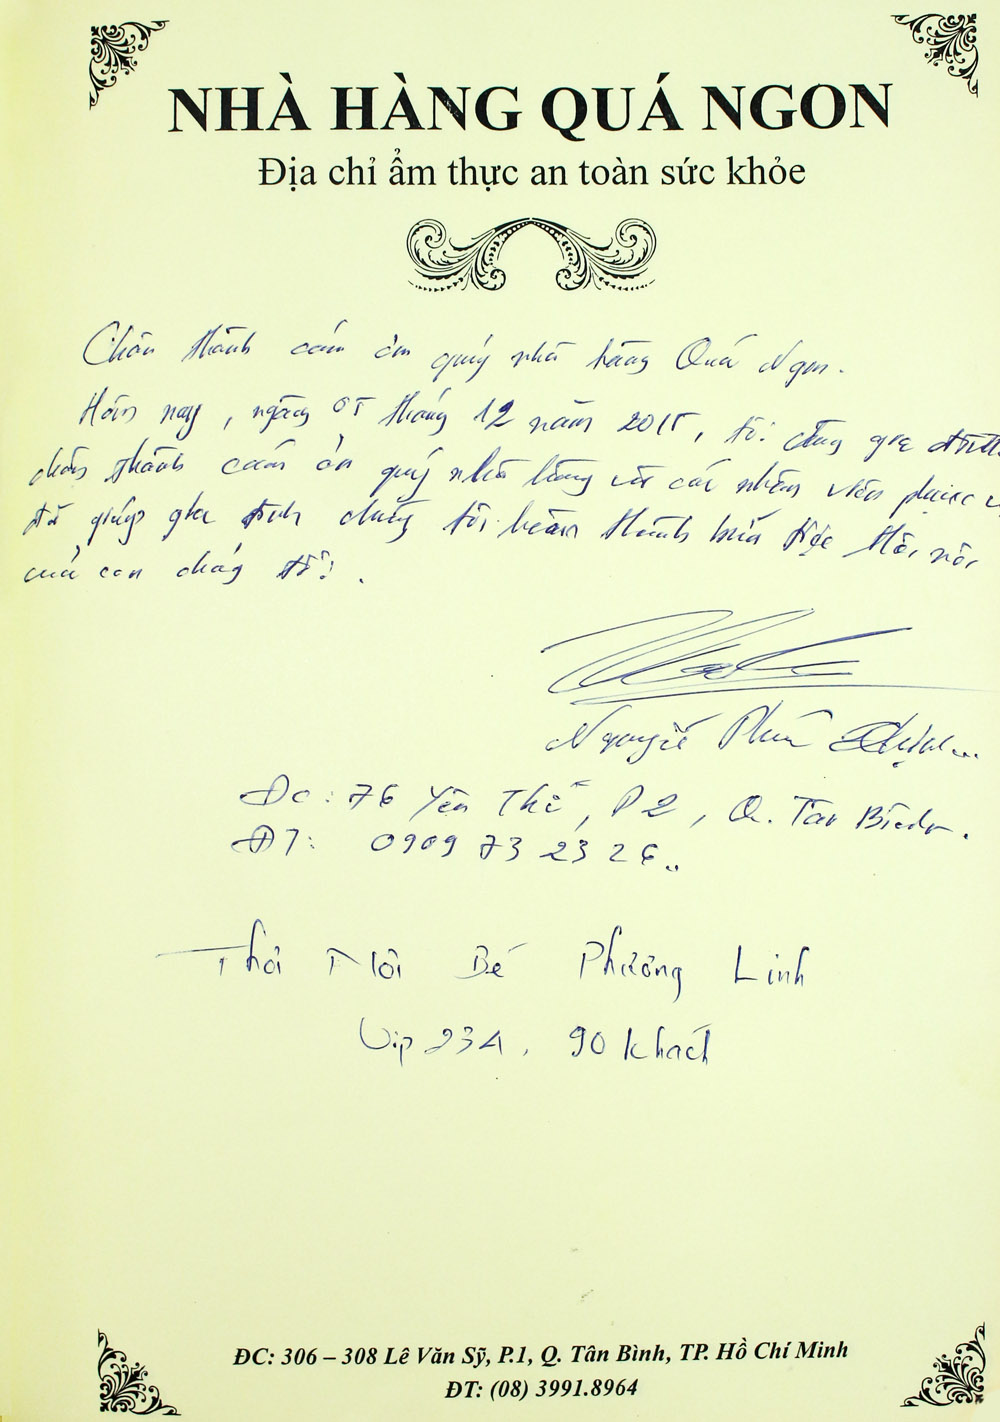 NHÀ HÀNG QUÁ NGON
Địa chỉ ẩm thực an toàn sức khỏe
Chân thành cám ơn quý nhà hàng Quá Ngon.
Hôm nay, ngày 05 tháng 12 năm 2015, tôi cùng gia đình
chân thành cám ơn quý nhà hàng và các nhân viên phục v
đã giúp gia đình chúng tôi hoàn thành bữa tiệc thôi nôi
của con chúng tôi.
Nguyễn Phú
ĐC: 76 Yên Thế, P2, Q. Tân Bình.
ĐT: 0909 73 23 26..
Thôi Nôi Bé Phương Linh
Vip 23A, 90 khách
ĐC: 306 – 308 Lê Văn Sỹ, P.1, Q. Tân Bình, TP. Hồ Chí Minh
ĐT: (08) 3991.8964